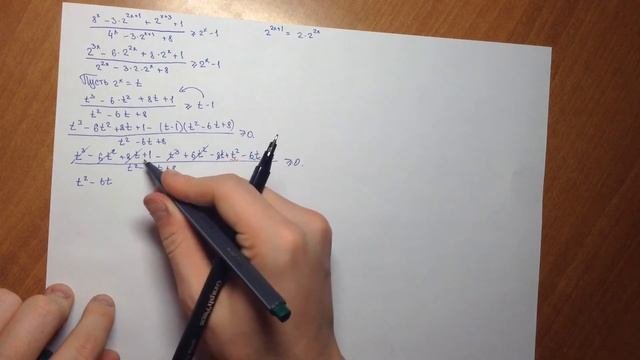 8^x - 3·2^{2x+1} + 2^{x+3} + 1 / 4^x - 3·2^{x+1} + 8 ≥ 2^x - 1
2^{2x+1} = 2·2^{2x}
2^{3x} - 6·2^{2x} + 8·2^x + 1 / 2^{2x} - 3·2·2^x + 8 ≥ 2^x - 1
Пусть 2^x = t
t^3 - 6·t^2 + 8t + 1 / t^2 - 6t + 8 ≥ t - 1
t^3 - 6t^2 + 8t + 1 - (t-1)(t^2 - 6t + 8) / t^2 - 6t + 8 ≥ 0.
t^3 - 6t^2 + 8t + 1 - t^3 + 6t^2 - 8t + t^2 - 6t / t^2 t + 8 ≥ 0.
t^2 - 6t